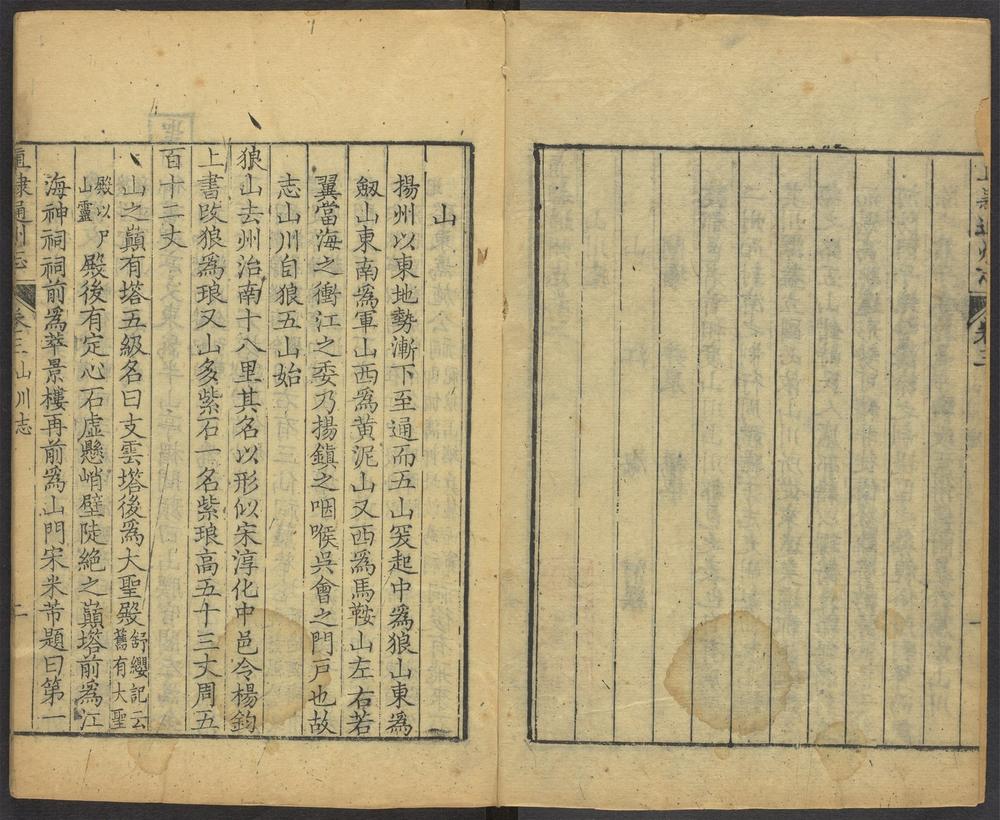 卷三
一
山
揚州以東地勢漸下至通而五山突起中為狼山東為
劔山東南為軍山西為黄泥山又西為馬鞍山左右若
翼當海之衝江之委乃揚鎮之咽喉吳會之門戸也故
志山川自狼五山始
狼山去州治南十八里其名以形似宋淳化中邑令楊鈞
上書攺狼為琅又山多紫石一名紫琅高五十三丈周五
百十二丈
山之巔有塔五級名曰支雲塔後為大聖殿舒纓記云舊有大聖
殿以山靈殿後有定心石虛懸峭壁陡絶之巔塔前為江
海神祠祠前為萃景樓再前為山門宋米芾題曰第一
直隸通州志 卷三 山川志 二